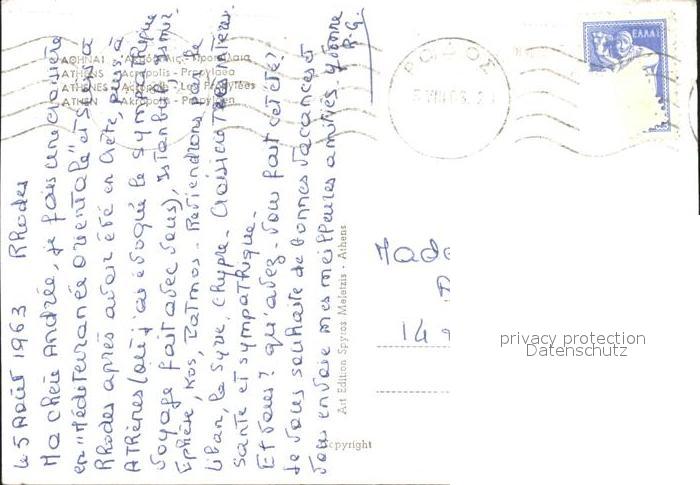 ΑΘΗΝΑΙ - Ἀκρόπολις. Προπύλαια
ATHENS - Acropolis - Propylaea
ATHENES - Acropole - Les Propylées
ATHEN - Akropolis - Propyläen
le 5 Août 1963 Rhodes
Ma chère Andrée, je fais une croisière
en "Méditerranée Orientale" et suis à
Rhodes après avoir été en Crète, puis à
Athènes (où j'ai évoqué le sympathique
voyage fait avec vous), Istanbul,
Ephèse, Kos, Patmos. Reviendrons par le
Liban, la Syrie, Chypre. Croisière
sante et sympathique.
Et vous? qu'avez-vous fait cet été?
Je vous souhaite de bonnes vacances et
vous envoie mes meilleures amitiés. Yvonne
R.G.
Art Edition Spyros Meletzis - Athens
Copyright
ΡΟΔΟΣ
ΕΛΛΑΣ
Made
14
privacy protection
Datenschutz